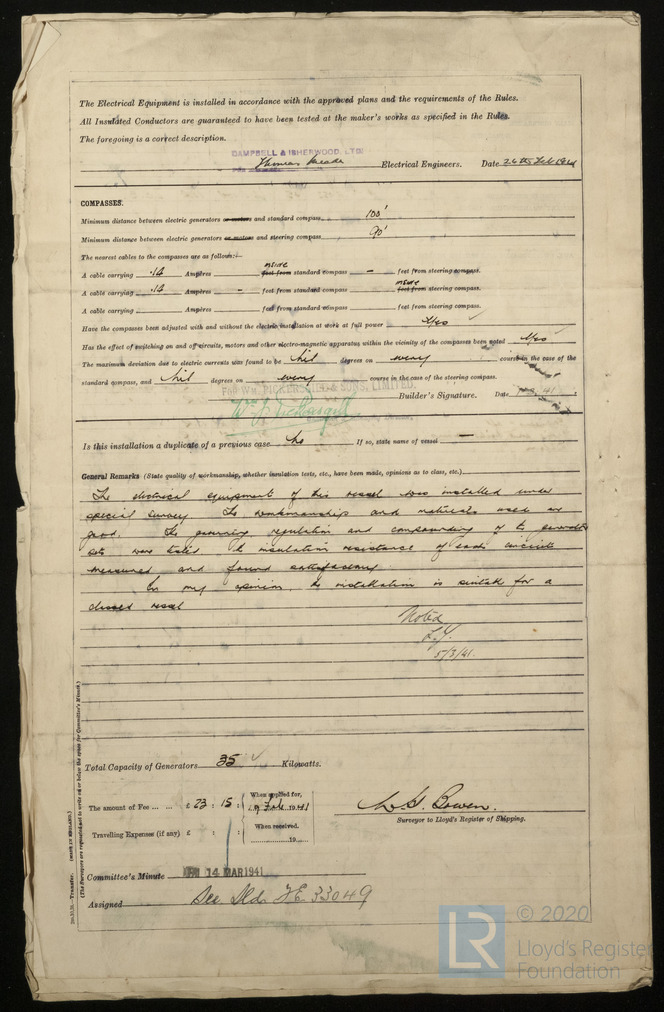 The Electrical Equipment is installed in accordance with the approved plans and the requirements of the Rules.
All Insulated Conductors are guaranteed to have been tested at the maker's works as specified in the Rules.
The foregoing is a correct description.
CAMPBELL & ISHERWOOD, LTD
Electrical Engineers. Date 26th Feb 1941
COMPASSES.
Minimum distance between electric generators or motors and standard compass 100'
Minimum distance between electric generators or motors and steering compass 90'
The nearest cables to the compasses are as follows:—
A cable carrying .14 Ampères inside feet from standard compass – feet from steering compass.
A cable carrying .14 Ampères – feet from standard compass inside feet from steering compass.
A cable carrying Ampères feet from standard compass feet from steering compass.
Have the compasses been adjusted with and without the electric installation at work at full power Yes
Has the effect of switching on and off circuits, motors and other electro-magnetic apparatus within the vicinity of the compasses been noted Yes
The maximum deviation due to electric currents was found to be Nil degrees on every course in the case of the
standard compass, and Nil degrees on every course in the case of the steering compass.
FOR WM. PICKERSGILL & SONS, LIMITED.
Builder's Signature. Date
Is this installation a duplicate of a previous case No If so, state name of vessel —
General Remarks (State quality of workmanship, whether insulation tests, etc., have been made, opinions as to class, etc.)
The electrical equipment of this vessel was installed under
special survey. The workmanship and materials used are
good. The governing regulation and compounding of the generator
sets were tested. The insulation resistance of each circuit
measured and found satisfactory
In my opinion, the installation is suitable for a
classed vessel
Noted
5/3/41.
Total Capacity of Generators 35 Kilowatts.
The amount of Fee ... ... £ 23 : 15 :
When applied for,
Feb 1941
Travelling Expenses (if any) £ : :
When received,
19
Surveyor to Lloyd's Register of Shipping.
Committee's Minute FRI 14 MAR 1941
Assigned See F.E. 33049
Transfer. (MADE IN ENGLAND.)
(The Surveyors are requested not to write on or below the space for Committee's Minute.)
LR
© 2020
Lloyd's Register
Foundation